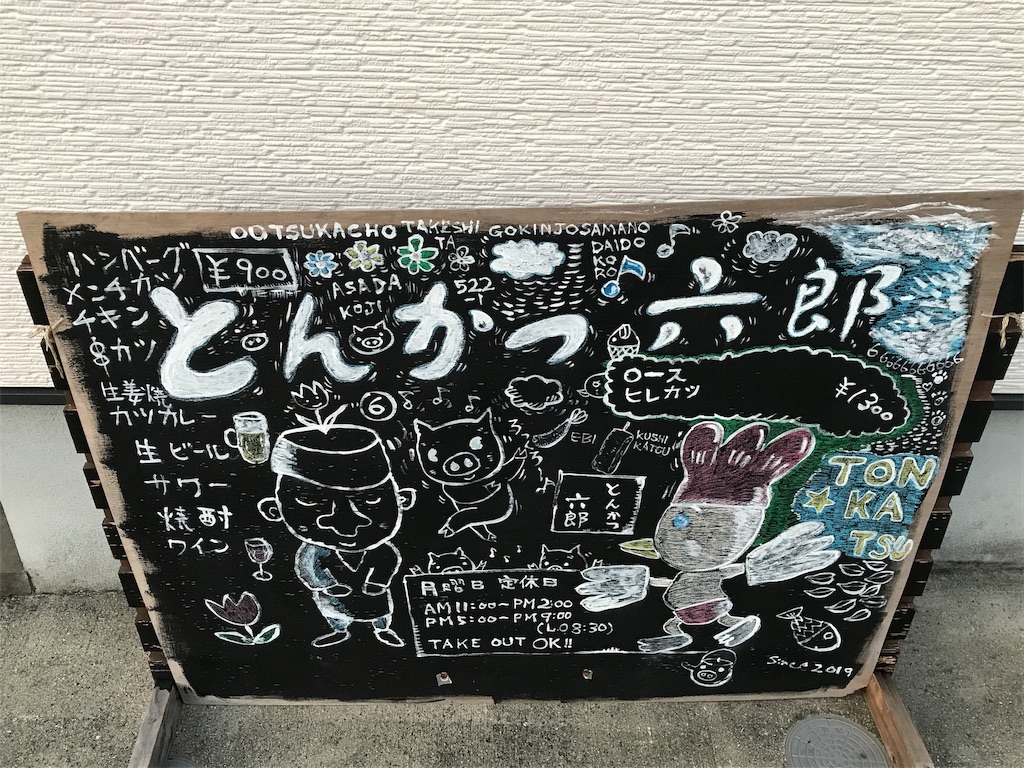 OOTSUKACHO TAKESHI
TA
GOKINJOSAMANO
DAIDO
KO
RO
ハンバーグ
メンチカツ
チキン
¥900
ASADA
KOJI
522
とんかつ 六郎
カツ
生姜焼
カツカレー
ロース
ヒレカツ
¥1300
6
EBI
KUSHI
KATSU
生ビール
サワー
焼酎
ワイン
とんかつ
六郎
TON
KA
TSU
月曜日 定休日
AM11:00~PM2:00
PM5:00~PM9:00
(L.O 8:30)
TAKE OUT OK!!
Since 2019